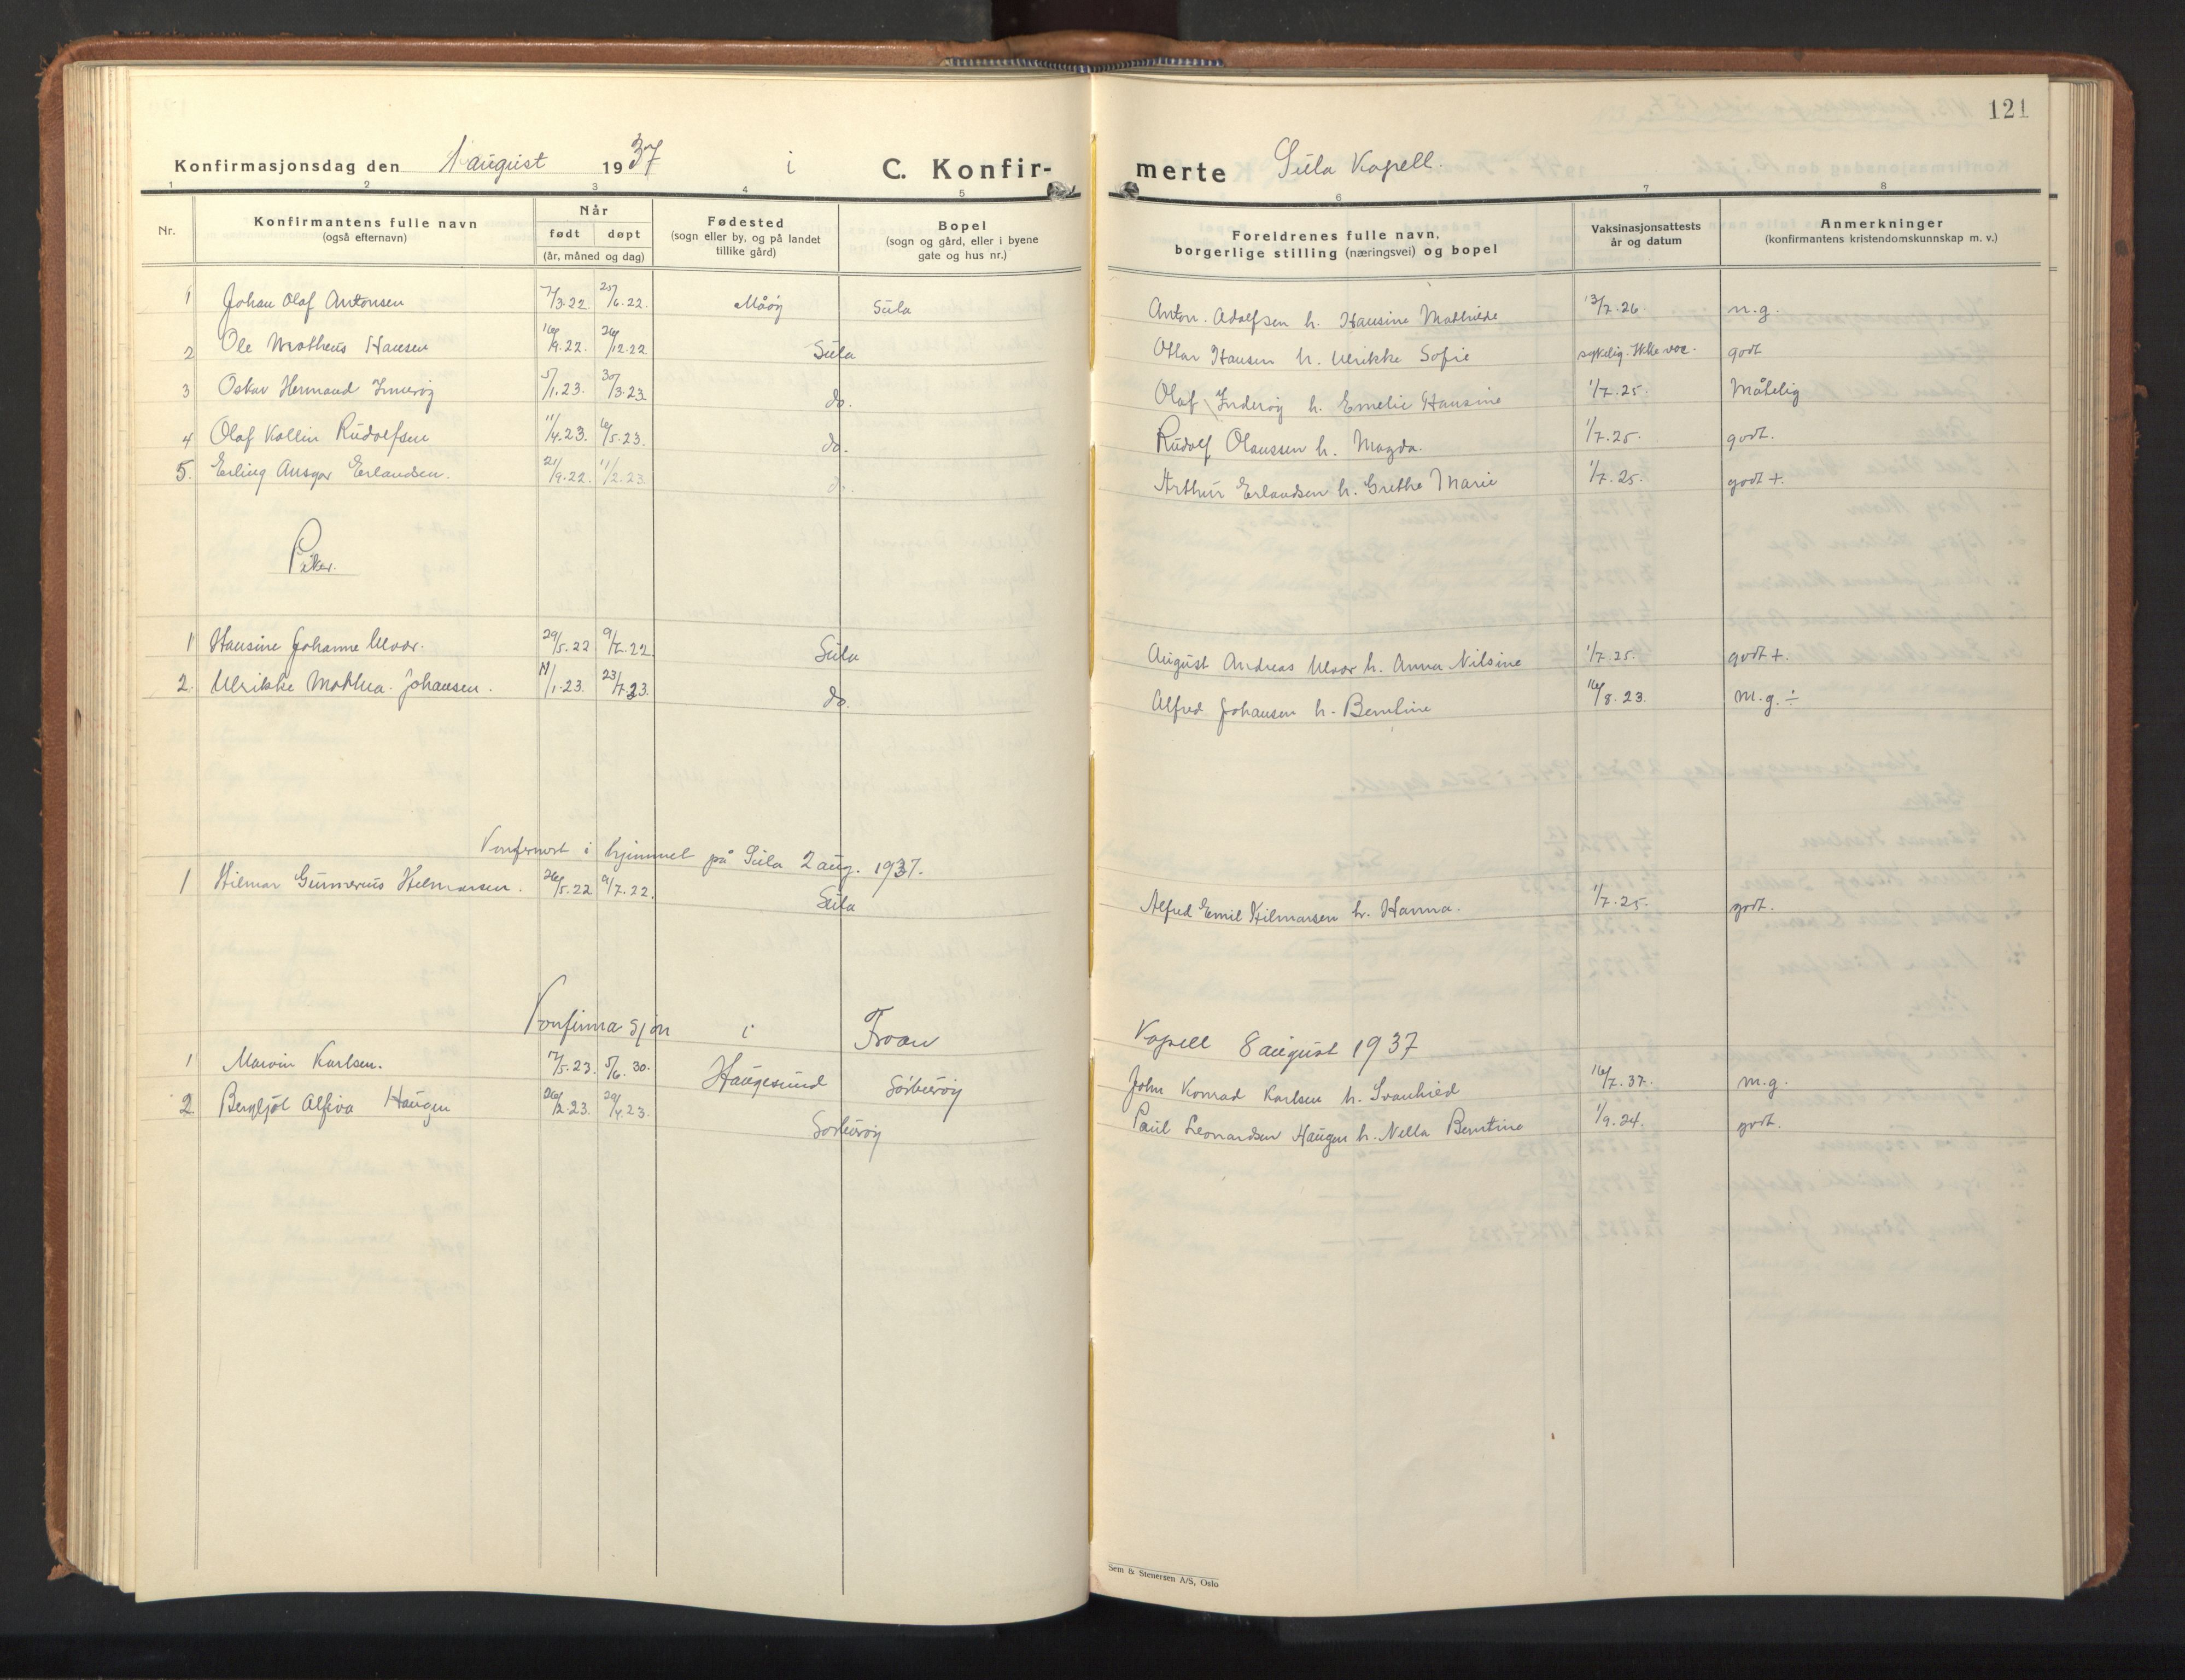 121
Konfirmasjonsdag den 1 august 1937 i C. Konfir- merte Sula Kapell.
1 2 3 4 5 6 7 8
Nr. Konfirmantens fulle navn (også efternavn) Når født døpt (år, måned og dag) Fødested (sogn eller by, og på landet tillike gård) Bopel (sogn og gård, eller i byene gate og hus nr.) Foreldrenes fulle navn, borgerlige stilling (næringsvei) og bopel Vaksinasjonsattests år og datum Anmerkninger (konfirmantens kristendomskunnskap m. v.)
1 Johan Olaf Antonsen 7/3.22. 25/6.22. Måøy Sula Anton. Adolfsen h. Hansine Mathilde 13/7.26 n.g.
2 Ole Matheus Hansen 16/9.22. 26/12.22 Sula Ottar Hansen h. Ulrikke Sofie sykelig. Ikke vac. godt
3 Oskar Hermand Innerøy 5/1.23. 30/3.23 do. Olaf Inderøy h. Emelie Hansine 1/7.25. Måtelig
4 Olaf Kollin Rudolfsen 11/4.23. 16/5.23. do. Rudolf Olaussen h. Magda. 1/7.25. godt.
5. Erling Ansgar Erlandsen. 21/9.22. 11/2.23 do. Arthur Erlandsen h. Grethe Marie 1/7.25. godt +.
Piker.
1 Hansine Johanne Ulvær. 29/5.22 9/7.22. Sula August Andreas Ulvær h. Anna Nilsine 1/7.25. godt +.
2. Ulrikke Mathea Johansen. 11/1.23. 23/7.23. do. Alfred Johansen h. Berntine 16/8.23. m.g. ÷
Konfirmert i hjemmet på Sula 2 aug. 1937.
1 Hilmar Gunnerius Hilmarsen. 26/5.22 9/7.22. Sula Alfred Emil Hilmarsen h. Hanna. 1/7.25. godt.
Konfirmasjon i Froan Kapell 8 august 1937
1 Marvin Karlsen. 7/5.23. 5/6.30. Haugesund Sørburøy John Konrad Karlsen h. Svanhied 16/7.37. m.g.
2 Bergljot Alfiva Haugen 26/2.23. 29/4.23. Sørburøy Paul Leonardsen Haugen h. Nella Berntine 1/9.24. godt.
Sem & Stenersen A/S, Oslo